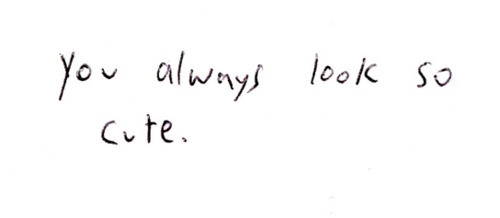 you always look so
cute.